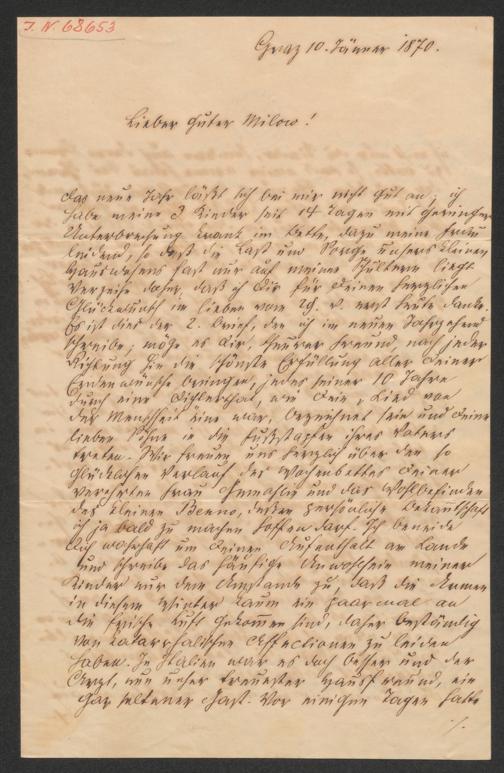 J. N. 68653
Graz 10. Jänner 1870.
Lieber guter Milow!
Das neue Jahr läßt sich bei mir nicht gut an; ich
habe meine 3 Kinder seit 14 Tagen mit geringer
Unterbrechung krank im Bette, dazu meine Frau
leidend, so daß die Last und Sorge unsers kleinen
Hauswesens fast nur auf meinen Schultern liegt.
Verzeihe daher, daß ich Dir für Deinen herzlichen
Glückwunsch im lieben vom 29. v. erst heute danke.
Es ist dies der 2. Brief, den ich im neuen Jahrzehend
schreibe; möge es Dir, theurer Freund nach jeder
Richtung hin die schönste Erfüllung aller Deiner
Erdenwünsche bringen, jedes seiner 10 Jahre
durch eine Dichterthat, wie Dein „Lied von
der Menschheit eine war, bezeichnet sein und Deine
lieben Söhne in die Fußstapfen ihres Vaters
treten. Wir freuen uns herzlich über den so
glücklichen Verlauf des Wochenbettes Deiner
verehrten Frau Gemahlin und das Wohlbefinden
des kleinen Benno, dessen persönliche Bekanntschaft
ich ja bald zu machen hoffen darf. Ich beneide
Dich wahrhaft um Deinen Aufenthalt am Lande
und schreibe das häufige Unwohlsein meiner
Kinder nur dem Umstande zu, daß die Armen
in diesem Winter kaum ein paarmal an
die frische Luft gekommen sind, daher beständig
von katarrhalischen Affectionen zu leiden
haben. In Italien war es doch besser und der
Arzt, nun unser treuester Hausfreund, ein
gar seltener Gast. Vor einigen Tagen hatte
./.